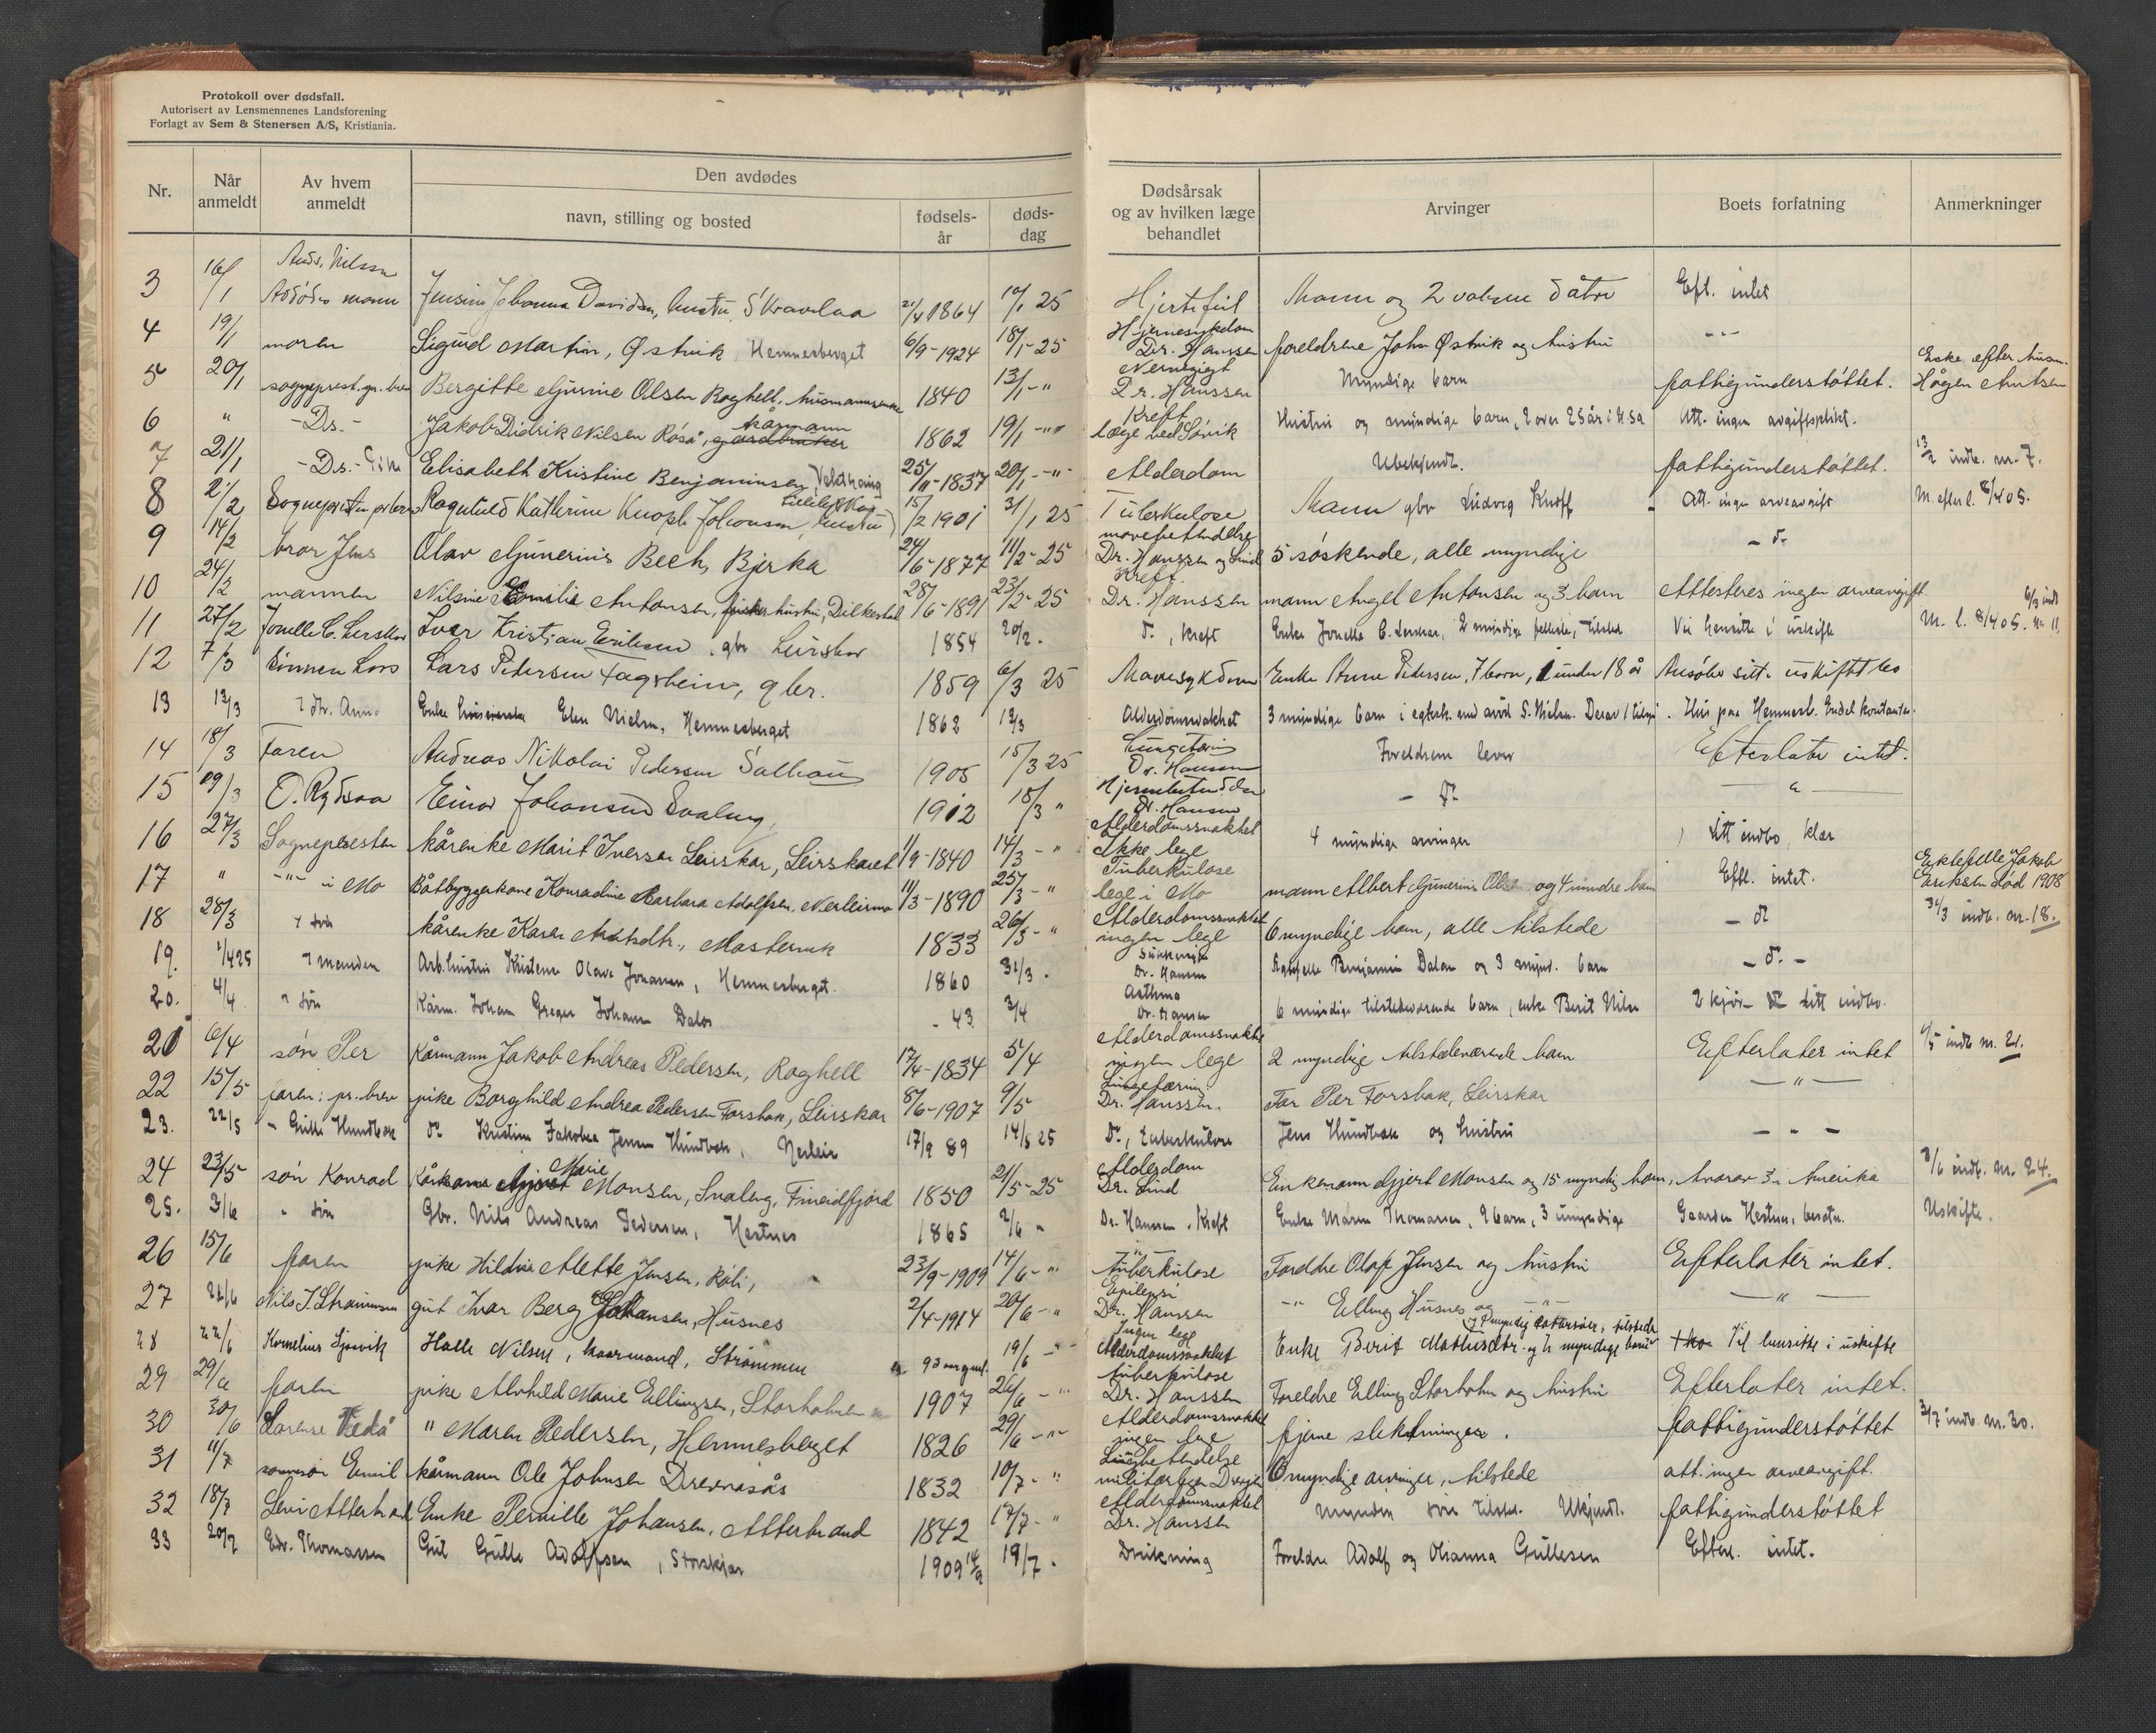 Protokoll over dødsfall.
Autorisert av Lensmennenes Landsforening
Forlagt av Sem & Stenersen A/S, Kristiania.
Nr. Når anmeldt Av hvem anmeldt Den avdødes navn, stilling og bosted fødsels-år døds-dag Dødsårsak og av hvilken læge behandlet Arvinger Boets forfatning Anmerkninger
3 16/1 Ands. Nilssen Avdødes mann Jensine Johanna Davidsen, hustru 21/4 1864 10/1 25 Hjertefeil Mann og 2 voksne døtre Eft. intet
4 19/1 moren Sigurd Martin, Østvik Hemnesberget 6/9-1924 18/1-25 Hjernesykdom Dr. Hanssen foreldrene John Østvik og hustru -"-
5 20/1 sogneprest. pr. brev Bergitte Gjurine Olsen Roghell, husmannsenke 1840 13/1-" Nervegigt Dr. Hanssen Myndige barn fattigunderstøttet. Enke efter husm. Hågen Antsen
6 " -Ds.- Jakob Didrik Nilsen Røså, gårdbruker kårmann 1862 19/1-"" Kreft læge ved Søvik Hustru og myndige barn, 2 over 25 år i USA Att. ingen avgiftsplikt.
7 21/1 -Ds.- Elisabeth Kristine Benjaminsen, 25/11-1837 20/1-"- Alderdom Ubekjendt. fattigunderstøttet. 13/2 indb. nr. 7.
8 2/2 Sognepresten pr brev Ragnhild Kathrine Knoph Johansen, hustru 15/2 1901 31/1 25 Tuberkulose Mann gbr Ludvig Knoff Att. ingen arveavgift M. efter l. 8/4 05.
9 14/2 bror Jens Olav Gunerius Bech, Bjerka 24/6-1877 11/2-25 mavebetendelse Dr. Hanssen og Lind 5 søskende, alle myndige - d.
10 24/2 mannen Nilsine Emilie Antonsen, fisker hustru, Dilkestad 28/6-1891 23/2-25 Kreft Dr. Hanssen mann Angel Antonsen og 3 barn Attesteres ingen arveavgift
11 27/2 Jonelle C. Lerskar Ivar Kristian Eriksen, gbr Leirskar 1854 20/2. d., kreft Enke Jonella C. Lerskar, 2 myndige Vil hensitte i uskifte M. l. 8/4 05. 6/3 indb nr 11
12 7/3 sønnen Lars Lars Pedersen Fagerheim, gbr. 1859 6/3 25 Mavesykdom Enke Anne Pedersen, 7 barn, 1 under 18 år Ansøker sitt. uskiftet bo
13 13/3 dtr. Anna Enke Elen Nielsen, Hemnesberget 1862 12/3 Alderdomsvakhet 3 myndige barn i egtesk. med avdø S. Nielsen. Derav 1 Hus paa Hemnesb. Endel kontanter.
14 18/3 Faren Andreas Nikolai Pedersen Sælhaug 1905 15/3 25 Lungetæring Dr. Hanssen Foreldrene lever Efterlater intet.
15 19/3 O. Rydsaa Einar Johansen Svaleng 1912 18/3 " Dr. Hanssen - d. - " -
16 27/3 Sognepresten kårenke Marit Iversen Leirskar, Leirskaret 11/9-1840 14/3-" Alderdomssvakhet Ikke lege 4 myndige arvinger litt indbo, klær
17 " -"- i Mo Båtbyggerkone Konradine Barbara Adolfsen, Nerleirmo 11/3-1890 25/3-" Tuberkulose lege i Mo mann Albert Gunerius Olsen og 4 mindre barn Eftl. intet. Enkefelle Jakob Eriksen død 1908
18 28/3 søn kårenke Karen Antsdtr., Mastervik 1833 26/3-" Alderdomssvakhet ingen lege 6 myndige barn, alle tilstede - d. 31/3 indb. nr. 18.
19. 1/4 25 Manden Arb. hustru Kristence Olava Jonassen, Hemnesberget. 1860 31/3. Sukkersyke Dr. Hansen Benjamin Dalen og 3 mynd. barn - d. -
20. 4/4 " søn Kårm. Johan Greger Johansen Dalos - 43 3/4 Asthma Dr. Hansen 6 myndige tilstedeværende barn, enke Berit Nilsen 2 kjør litt indbo.
21 6/4 søn Per Kårmann Jakob Andreas Pedersen, Roghell 17/4-1834 5/4 Alderdomssvakhet ingen lege 2 myndige tilstedeværende barn Efterlater intet 4/5 indb nr. 21.
22 15/5 faren: pr. brev pike Borghild Andrea Pedersen Forsbak, Leirskar 8/6-1907 9/5 Lungetæring Dr. Hanssen. Far Per Forsbak, Leirskar - " -
23. 22/5 " Gutte Hundbak d. Kristine Jakobea Jensen Hundbak, Nerleir 17/9 89 14/5 25 D., Tuberkulose Jens Hundbak og hustru - - -
24 23/5 søn Konrad Kårkone Marie Monsen, Svaleng, Finneidfjord 1850 21/5-25 Alderdom Dr. Lind Enkemann Gjert Monsen og 15 myndig barn, hvorav 3 i Amerika 8/6 indb. nr. 24.
25. 3/6 " søn Gbr. Nils Andreas Pedersen, Hestnes 1865 2/6 " Dr. Hanssen. Kreft Enke Maren Thomassen, 9 barn, 3 umyndige Gaarden Hestnes, besetn. Uskifte.
26 15/6 faren pike Hildur Alette Jensen, Røli, 23/9-1909 14/6-" -"- Tuberkulose Foreldre Olaf Jensen og hustru Efterlater intet.
27 22/6 Nils J. Strømmen gut Ivar Berg Johansen, Husnes 2/4-1914 20/6-" Epilepsi Dr. Hanssen -"- Elling Husnes og -"- - " -
28 22/6 Kornelius Sjøsvik Halle Nilsen, kaarmand, Strømmen 93 aar gml. 19/6-" Ingen lege Alderdomssvakhet Enke Berit Mathisdtr. og 2 myndige barn Vil hensitte i uskifte
29 29/6 faren pike Alvhild Marie Ellingsen, Storholmen 1907 26/6-" Tuberkulose Dr. Hanssen Foreldre Elling Storholm og hustru Efterlater intet.
30 30/6 Lorense Vedå " Maren Pedersen, Hemnesberget 1826 29/6-" Alderdomssvakhet ingen lege fjerne slektninger. fattigunderstøttet 3/7 indb. nr. 30.
31 11/7 sønnesøn Emil kårmann Ole Johnsen Drevvasås 1832 10/7-" Lungebetendelse militærlegen 6 myndige arvinger, tilstede att. ingen arveavgift.
32 18/7 Levi Alterhaug Enke Pernille Johansen, Altersand 1842 17/7-" Alderdomssvakhet Dr. Hanssen Myndig søn tilsted. Ukjendt. fattigunderstøttet
33 20/7 Edv. Thomassen Gut Gulle Adolfsen, Storskjær 1909 14/9 19/7. Drukning Foreldre Adolf og Olianna Gullesen Efterl. intet.